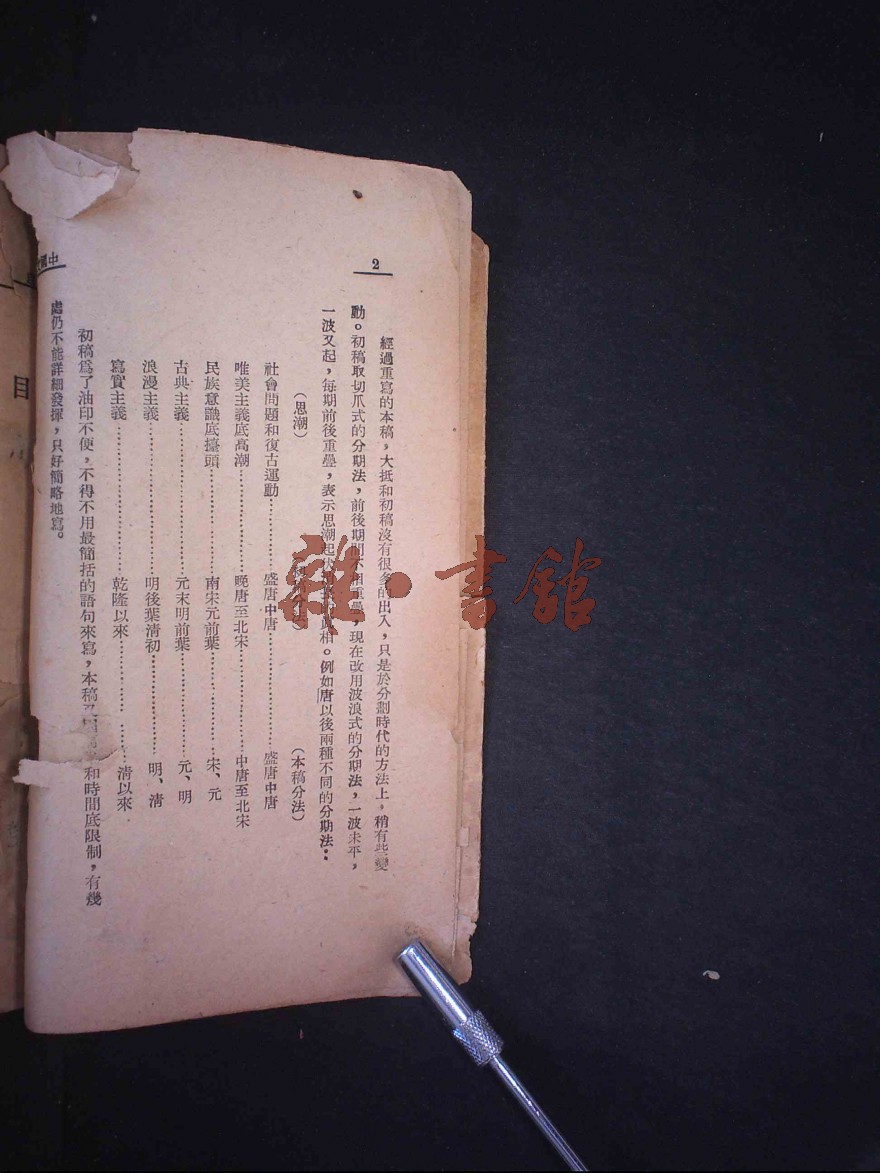 2
經過重寫的本稿，大抵和初稿沒有很多的出入，只是於分劃時代的方法上，稍有些變
動。初稿取切爪式的分期法，前後期間不相重疊，現在改用波浪式的分期法，一波未平，
一波又起，每期前後重疊，表示思潮起伏 相。例如唐以後兩種不同的分期法：
（思潮） （本稿分法）
社會問題和復古運動……………盛唐中唐……………盛唐中唐
唯美主義底高潮……………晚唐至北宋……………中唐至北宋
民族意識底擡頭……………南宋元前葉……………宋、元
古典主義……………元末明前葉……………元、明
浪漫主義……………明後葉清初……………明、清
寫實主義……………乾隆以來……………清以來
初稿爲了油印不便，不得不用最簡括的語句來寫，本稿 和時間底限制，有幾
處仍不能詳細發揮，只好簡略地寫。
中國
目
雜·書館